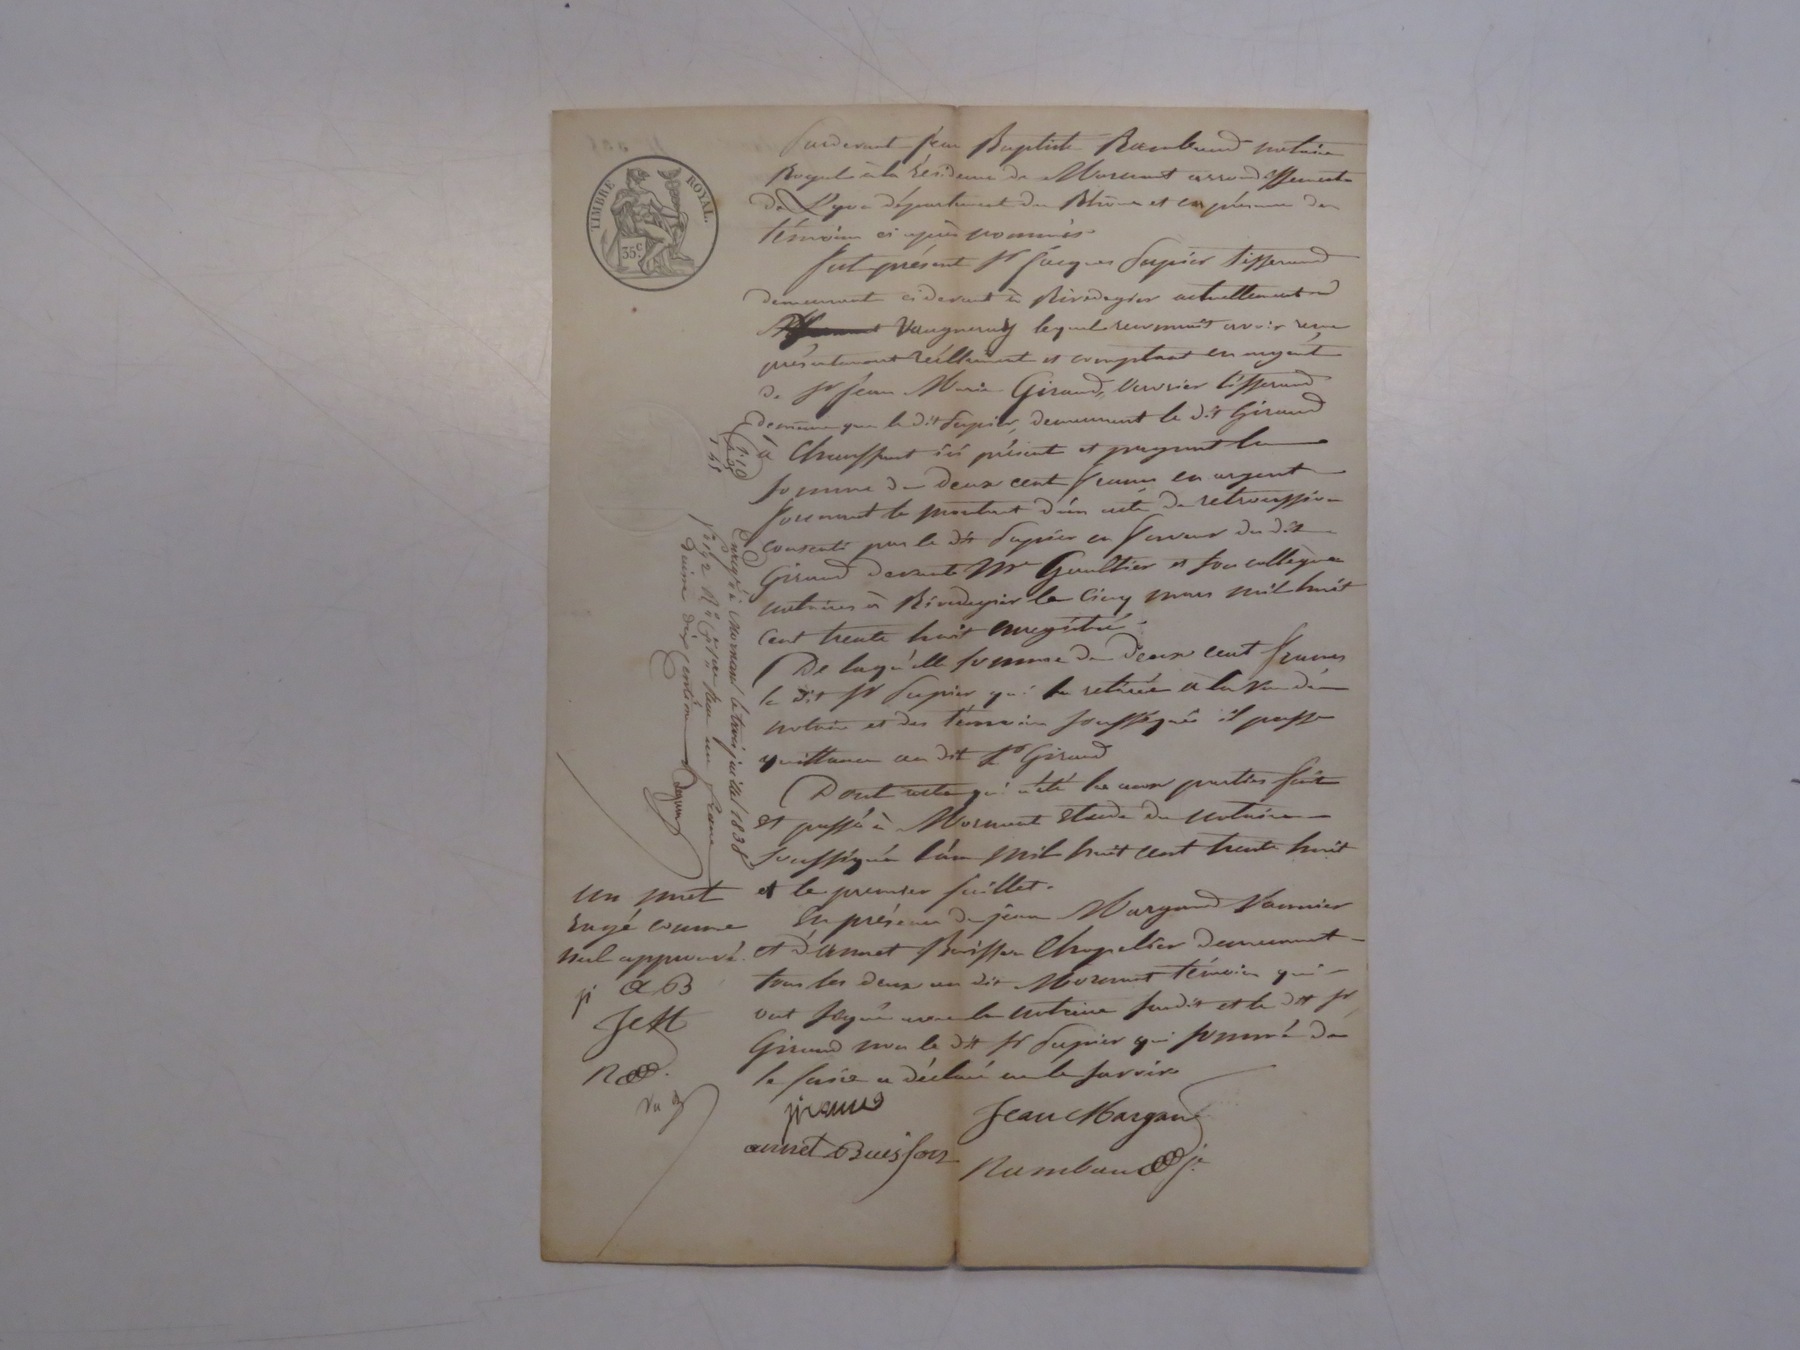 TIMBRE ROYAL.
35c.
Pardevant Jean Baptiste Rambaud notaire
Royal à la Résidence de Mornant arrondissement
de Lyon département du Rhône et en présence des
témoins ci après nommés.
fut présent Sr Jacques Supier tisserand
demeurant ci devant à Rivedegier actuellement à
Vaugneray lequel reconnait avoir reçu
présentement réellement et comptant en argent
de Sr Jean Marie Giraud, ouvrier tisserand
demême que le dit Supier, demeurant le dit Giraud
à Chaussant ici présent et payant la
somme de deux cent francs en argent
formant le montant d'un acte de retrocession
consenti par le dit Supier en faveur du dit
Giraud devant Me Gaultier et son collègue
notaires à Rivedegier le Cinq mars mil huit
cent trente huit enregistré.
De laquelle somme de deux cent francs
le dit Sr Supier qui l'a retirée à la vue du
notaire et des témoins soussignés il passe
quittance au dit Sr Giraud
Dont acte qui a été lu aux parties fait
et passé à Mornant étude du notaire
soussigné l'an mil huit cent trente huit
et le premier juillet.
En présence de Jean Margand Vannier
et d'annet Buisson Chapelier demeurant
tous les deux au dit Mornant témoins qui
ont signé avec le notaire susdit et le dit Sr
Giraud non le dit Sr Supier qui sommé de
le faire a déclaré ne le savoir
jiraud
Jean Margand
annet Buisson
Rambaud
Enregtré à Mornant le trois juillet 1838
un franc
dixime dix centimes
1.10
un mot
rayé comme
nul approuvé.
ji
aB